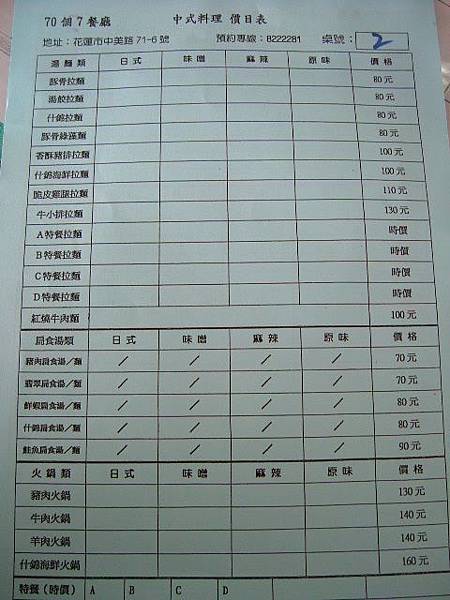 70 個 7 餐廳 中式料理 價目表
地址：花蓮市中美路 71-6 號 預約專線：8222281 桌號： 2
湯麵類 日式 味噌 麻辣 原味 價格
豚骨拉麵 80 元
湯餃拉麵 80 元
什錦拉麵 80 元
豚骨綠藻麵 80 元
香酥豬排拉麵 100 元
什錦海鮮拉麵 100 元
脆皮雞腿拉麵 110 元
牛小排拉麵 130 元
A 特餐拉麵 時價
B 特餐拉麵 時價
C 特餐拉麵 時價
D 特餐拉麵 時價
紅燒牛肉麵 100 元
扁食湯類 日式 味噌 麻辣 原味 價格
豬肉扁食湯／麵 ／ ／ ／ ／ 70 元
翡翠扁食湯／麵 ／ ／ ／ ／ 70 元
鮮蝦扁食湯／麵 ／ ／ ／ ／ 80 元
什錦扁食湯／麵 ／ ／ ／ ／ 80 元
鮭魚扁食湯／麵 ／ ／ ／ ／ 90 元
火鍋類 日式 味噌 麻辣 原味 價格
豬肉火鍋 130 元
牛肉火鍋 140 元
羊肉火鍋 140 元
什錦海鮮火鍋 160 元
特餐（時價） A B C D